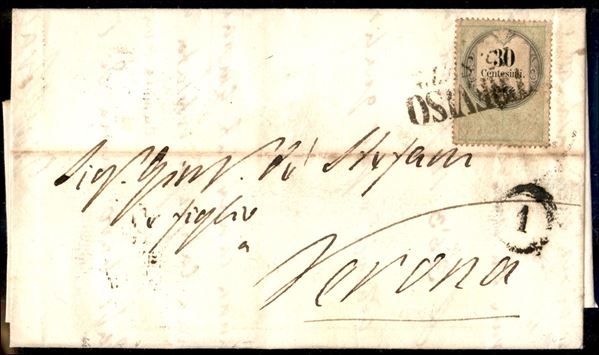 30
Centesimi.
Sigr. Gius. de' Stefani
e figlio
a
Verona
1